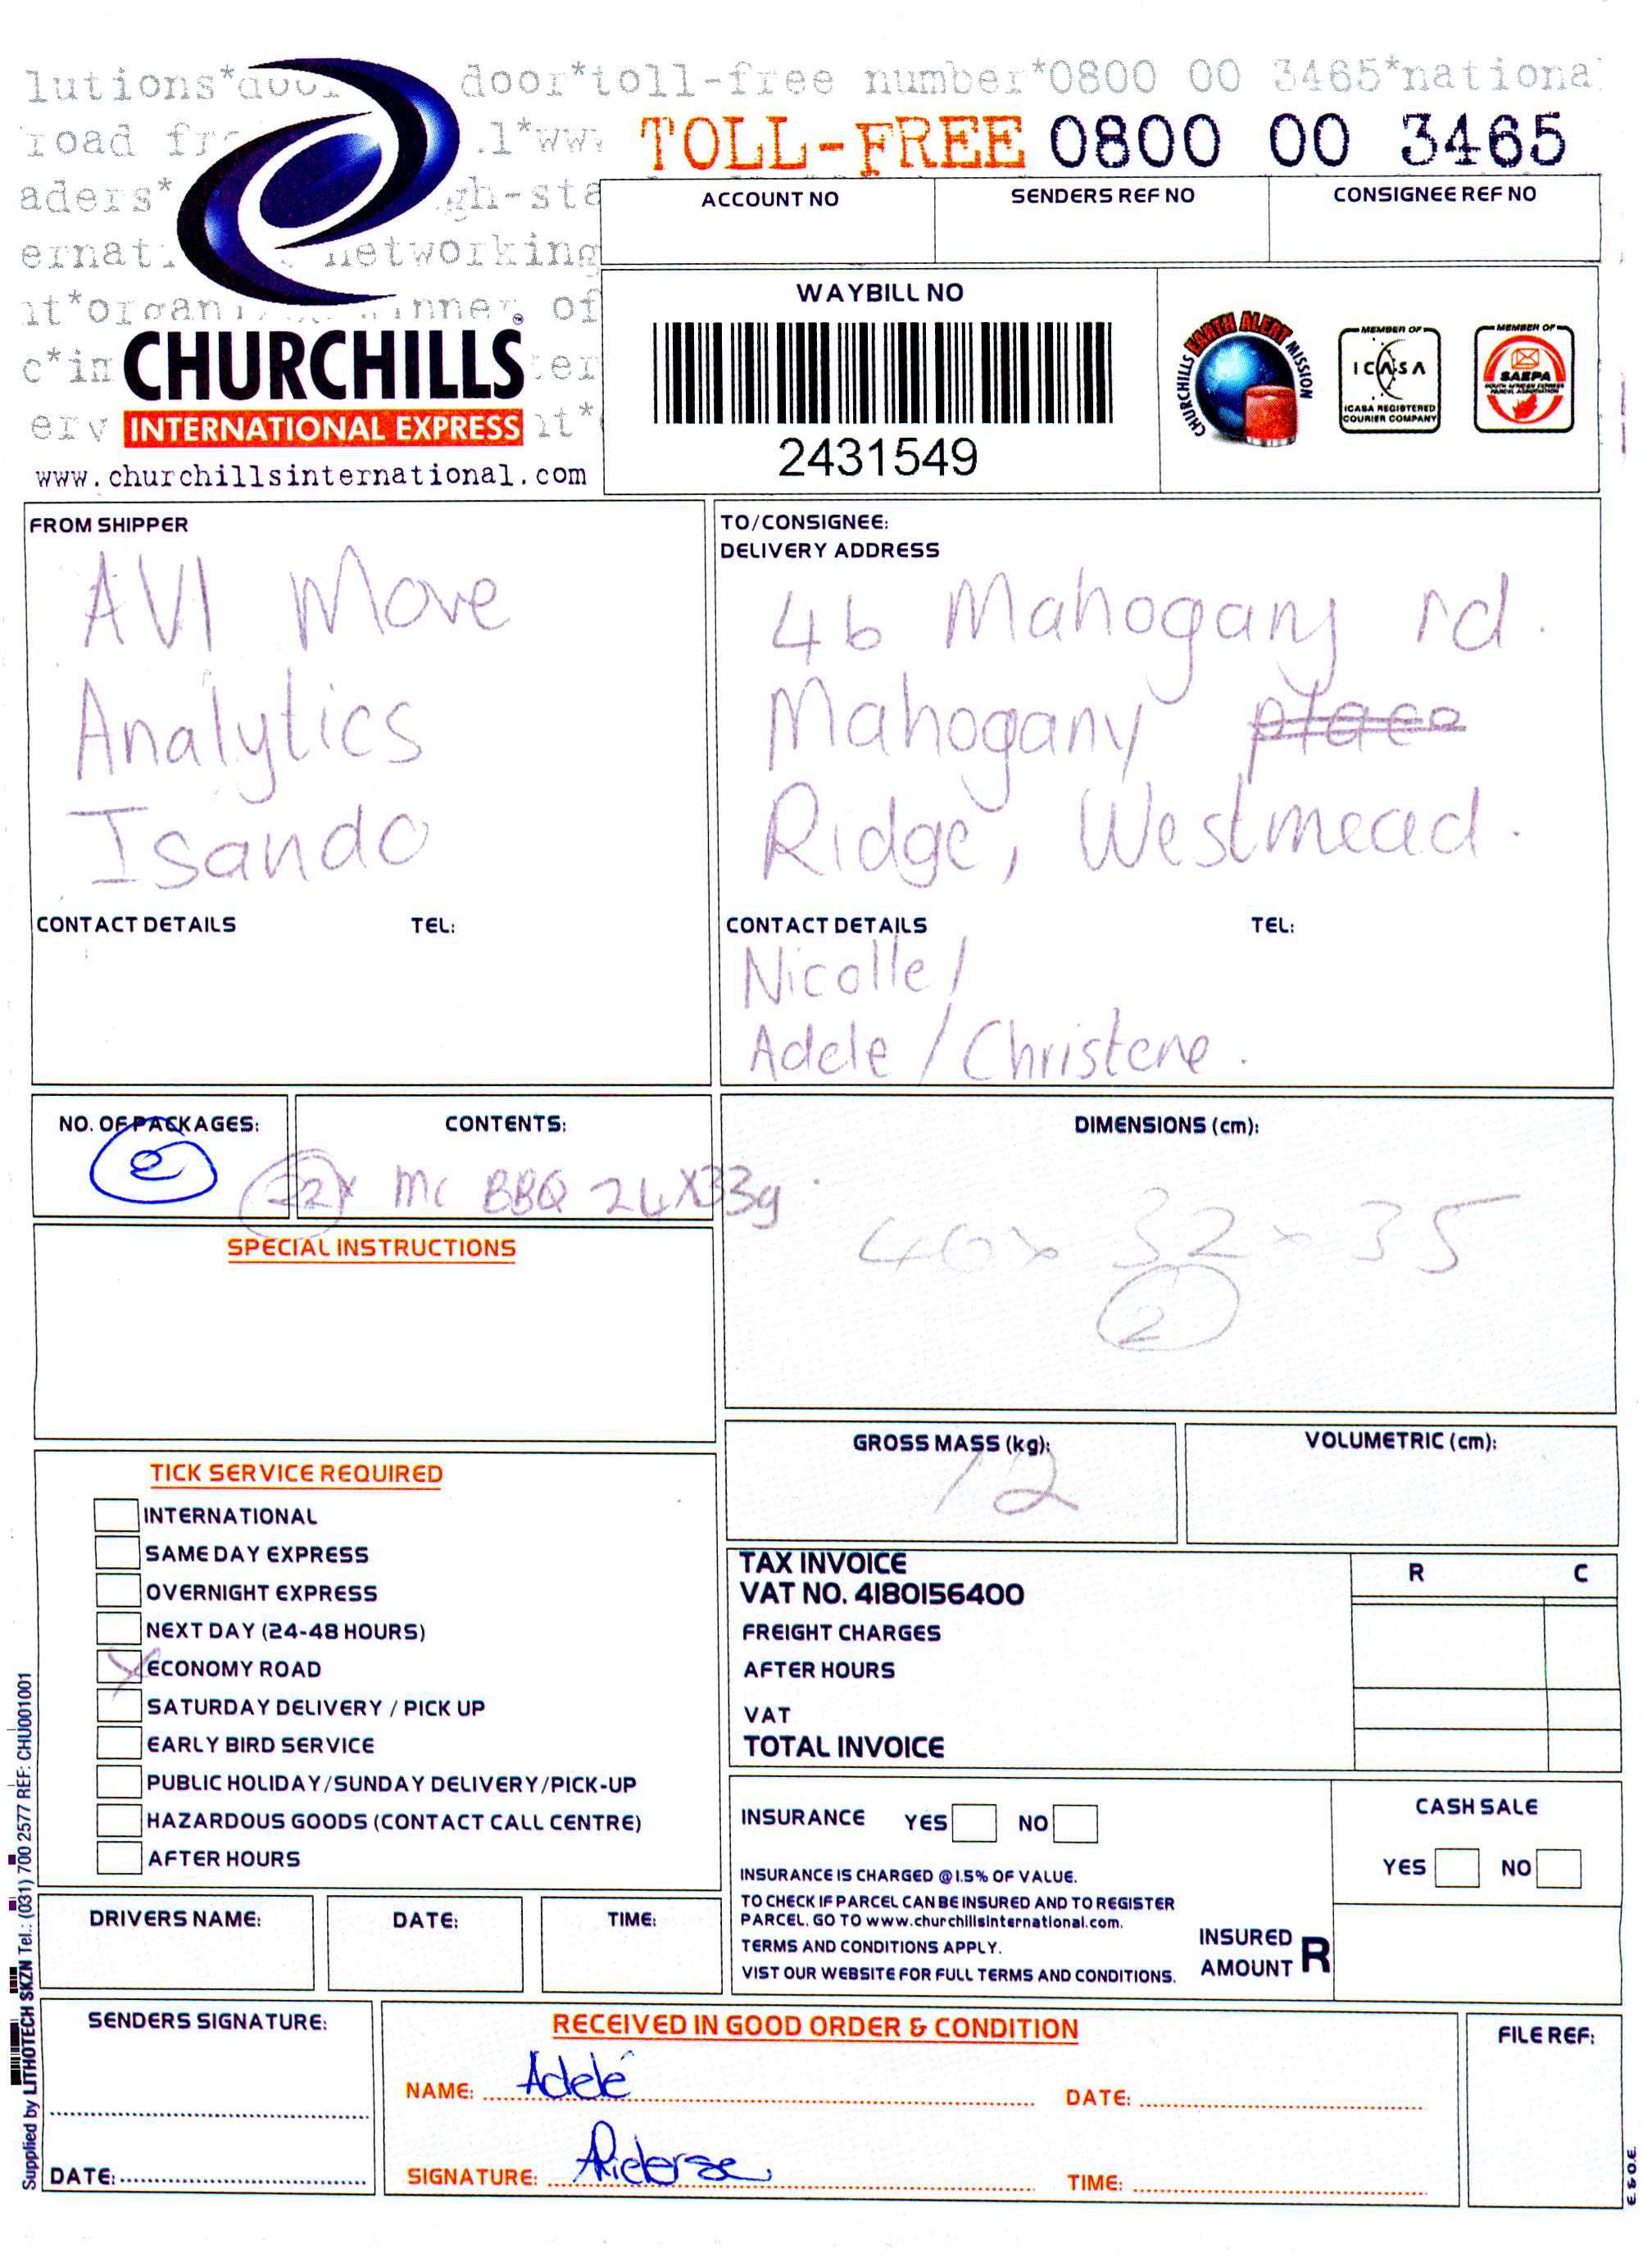 lutions*door door*toll-free number*0800 00 3465*nationa
road fr .l*www TOLL-FREE 0800 00 3465
aders* gh-sta
ACCOUNT NO SENDERS REF NO CONSIGNEE REF NO
ernati networking
it*organi inner of
WAYBILL NO
2431549
CHURCHILLS EARTH ALERT MISSION
MEMBER OF
ICASA
ICASA REGISTERED
COURIER COMPANY
MEMBER OF
SAEPA
SOUTH AFRICAN EXPRESS
PARCEL ASSOCIATION
c*in CHURCHILLS ter
TM
erv INTERNATIONAL EXPRESS it*
www.churchillsinternational.com
FROM SHIPPER
AVI Move
Analytics
Isando
CONTACT DETAILS TEL:
TO/CONSIGNEE:
DELIVERY ADDRESS
46 Mahogany rd.
Mahogany place
Ridge, Westmead.
CONTACT DETAILS TEL:
Nicolle/
Adele / Christene.
NO. OF PACKAGES:
CONTENTS:
2x MC BBQ 24X33g
DIMENSIONS (cm):
40x 32 x 35
2
SPECIAL INSTRUCTIONS
GROSS MASS (kg):
12
VOLUMETRIC (cm):
TICK SERVICE REQUIRED
INTERNATIONAL
SAME DAY EXPRESS
OVERNIGHT EXPRESS
NEXT DAY (24-48 HOURS)
X ECONOMY ROAD
SATURDAY DELIVERY / PICK UP
EARLY BIRD SERVICE
PUBLIC HOLIDAY/SUNDAY DELIVERY/PICK-UP
HAZARDOUS GOODS (CONTACT CALL CENTRE)
AFTER HOURS
TAX INVOICE R C
VAT NO. 4180156400
FREIGHT CHARGES
AFTER HOURS
VAT
TOTAL INVOICE
INSURANCE YES NO
INSURANCE IS CHARGED @1.5% OF VALUE.
TO CHECK IF PARCEL CAN BE INSURED AND TO REGISTER
PARCEL, GO TO www.churchillsinternational.com.
TERMS AND CONDITIONS APPLY.
VIST OUR WEBSITE FOR FULL TERMS AND CONDITIONS.
CASH SALE
YES NO
INSURED
AMOUNT R
DRIVERS NAME: DATE: TIME:
SENDERS SIGNATURE:
DATE:
RECEIVED IN GOOD ORDER & CONDITION
NAME: Adelé DATE:
SIGNATURE: TIME:
FILE REF:
Supplied by LITHOTECH SKZN Tel.: (031) 700 2577 REF: CHU001001
E. & O.E.